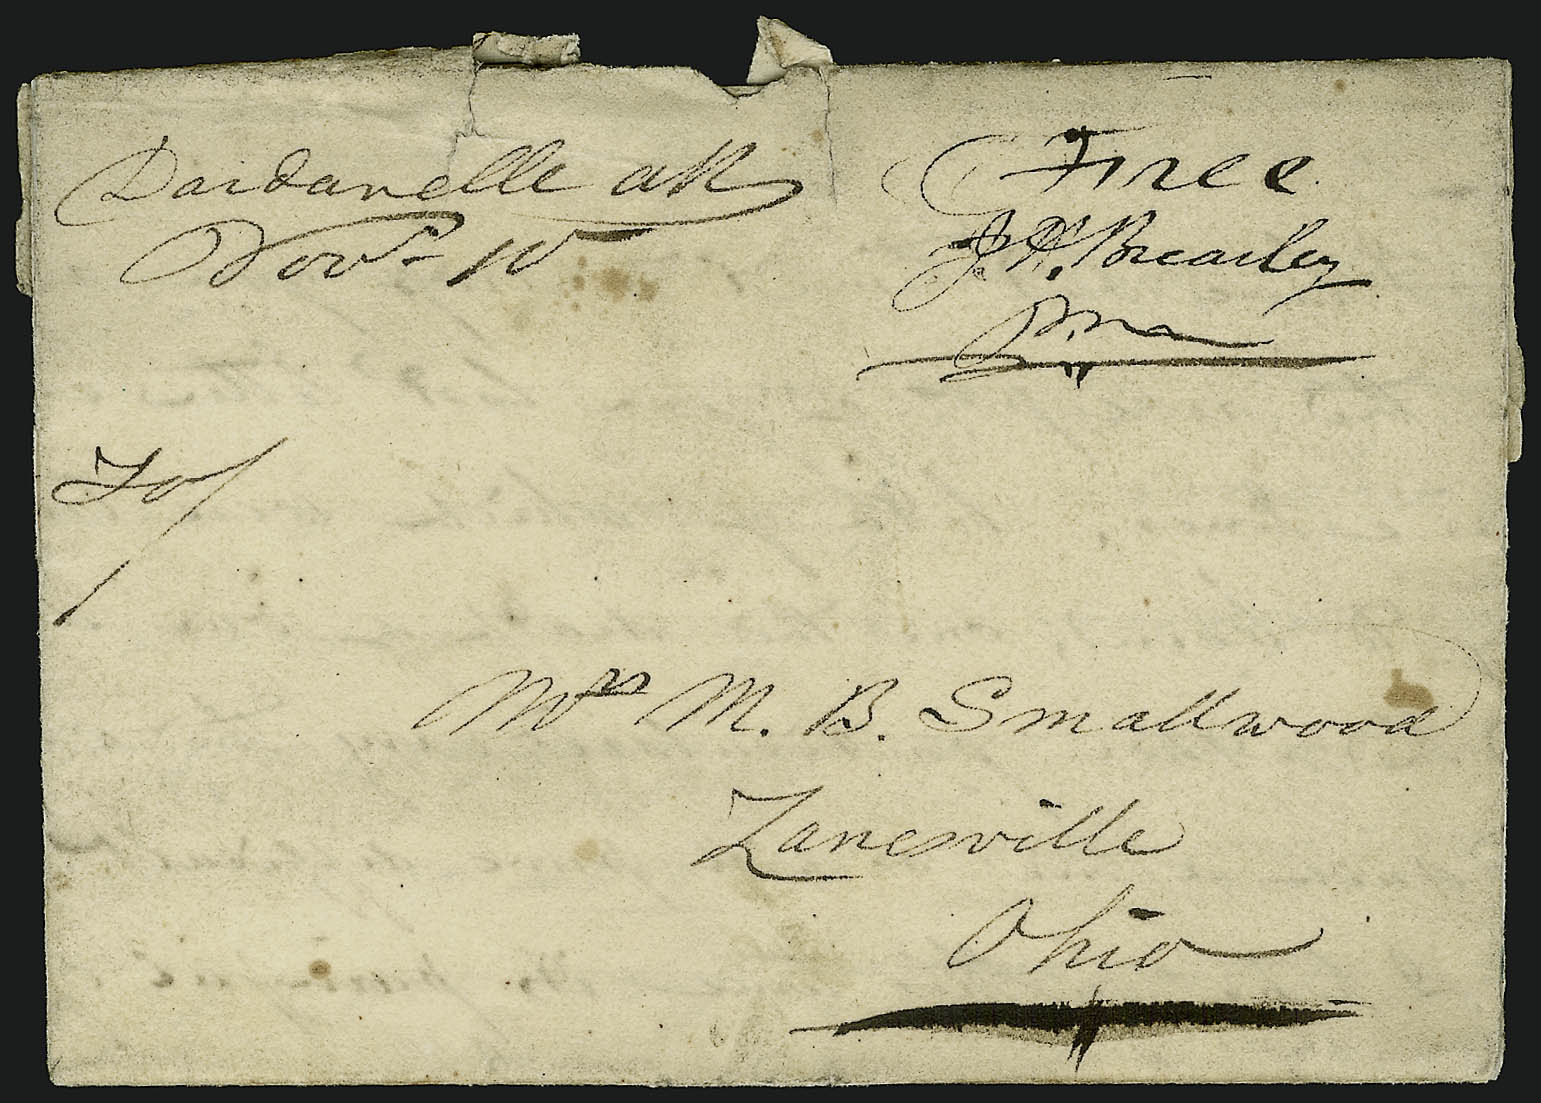 Dardanelle AR
Nov.r 10
Free
J. H. Brearley
P.M.
To/
Mrs M. B. Smallwood
Zanesville
Ohio